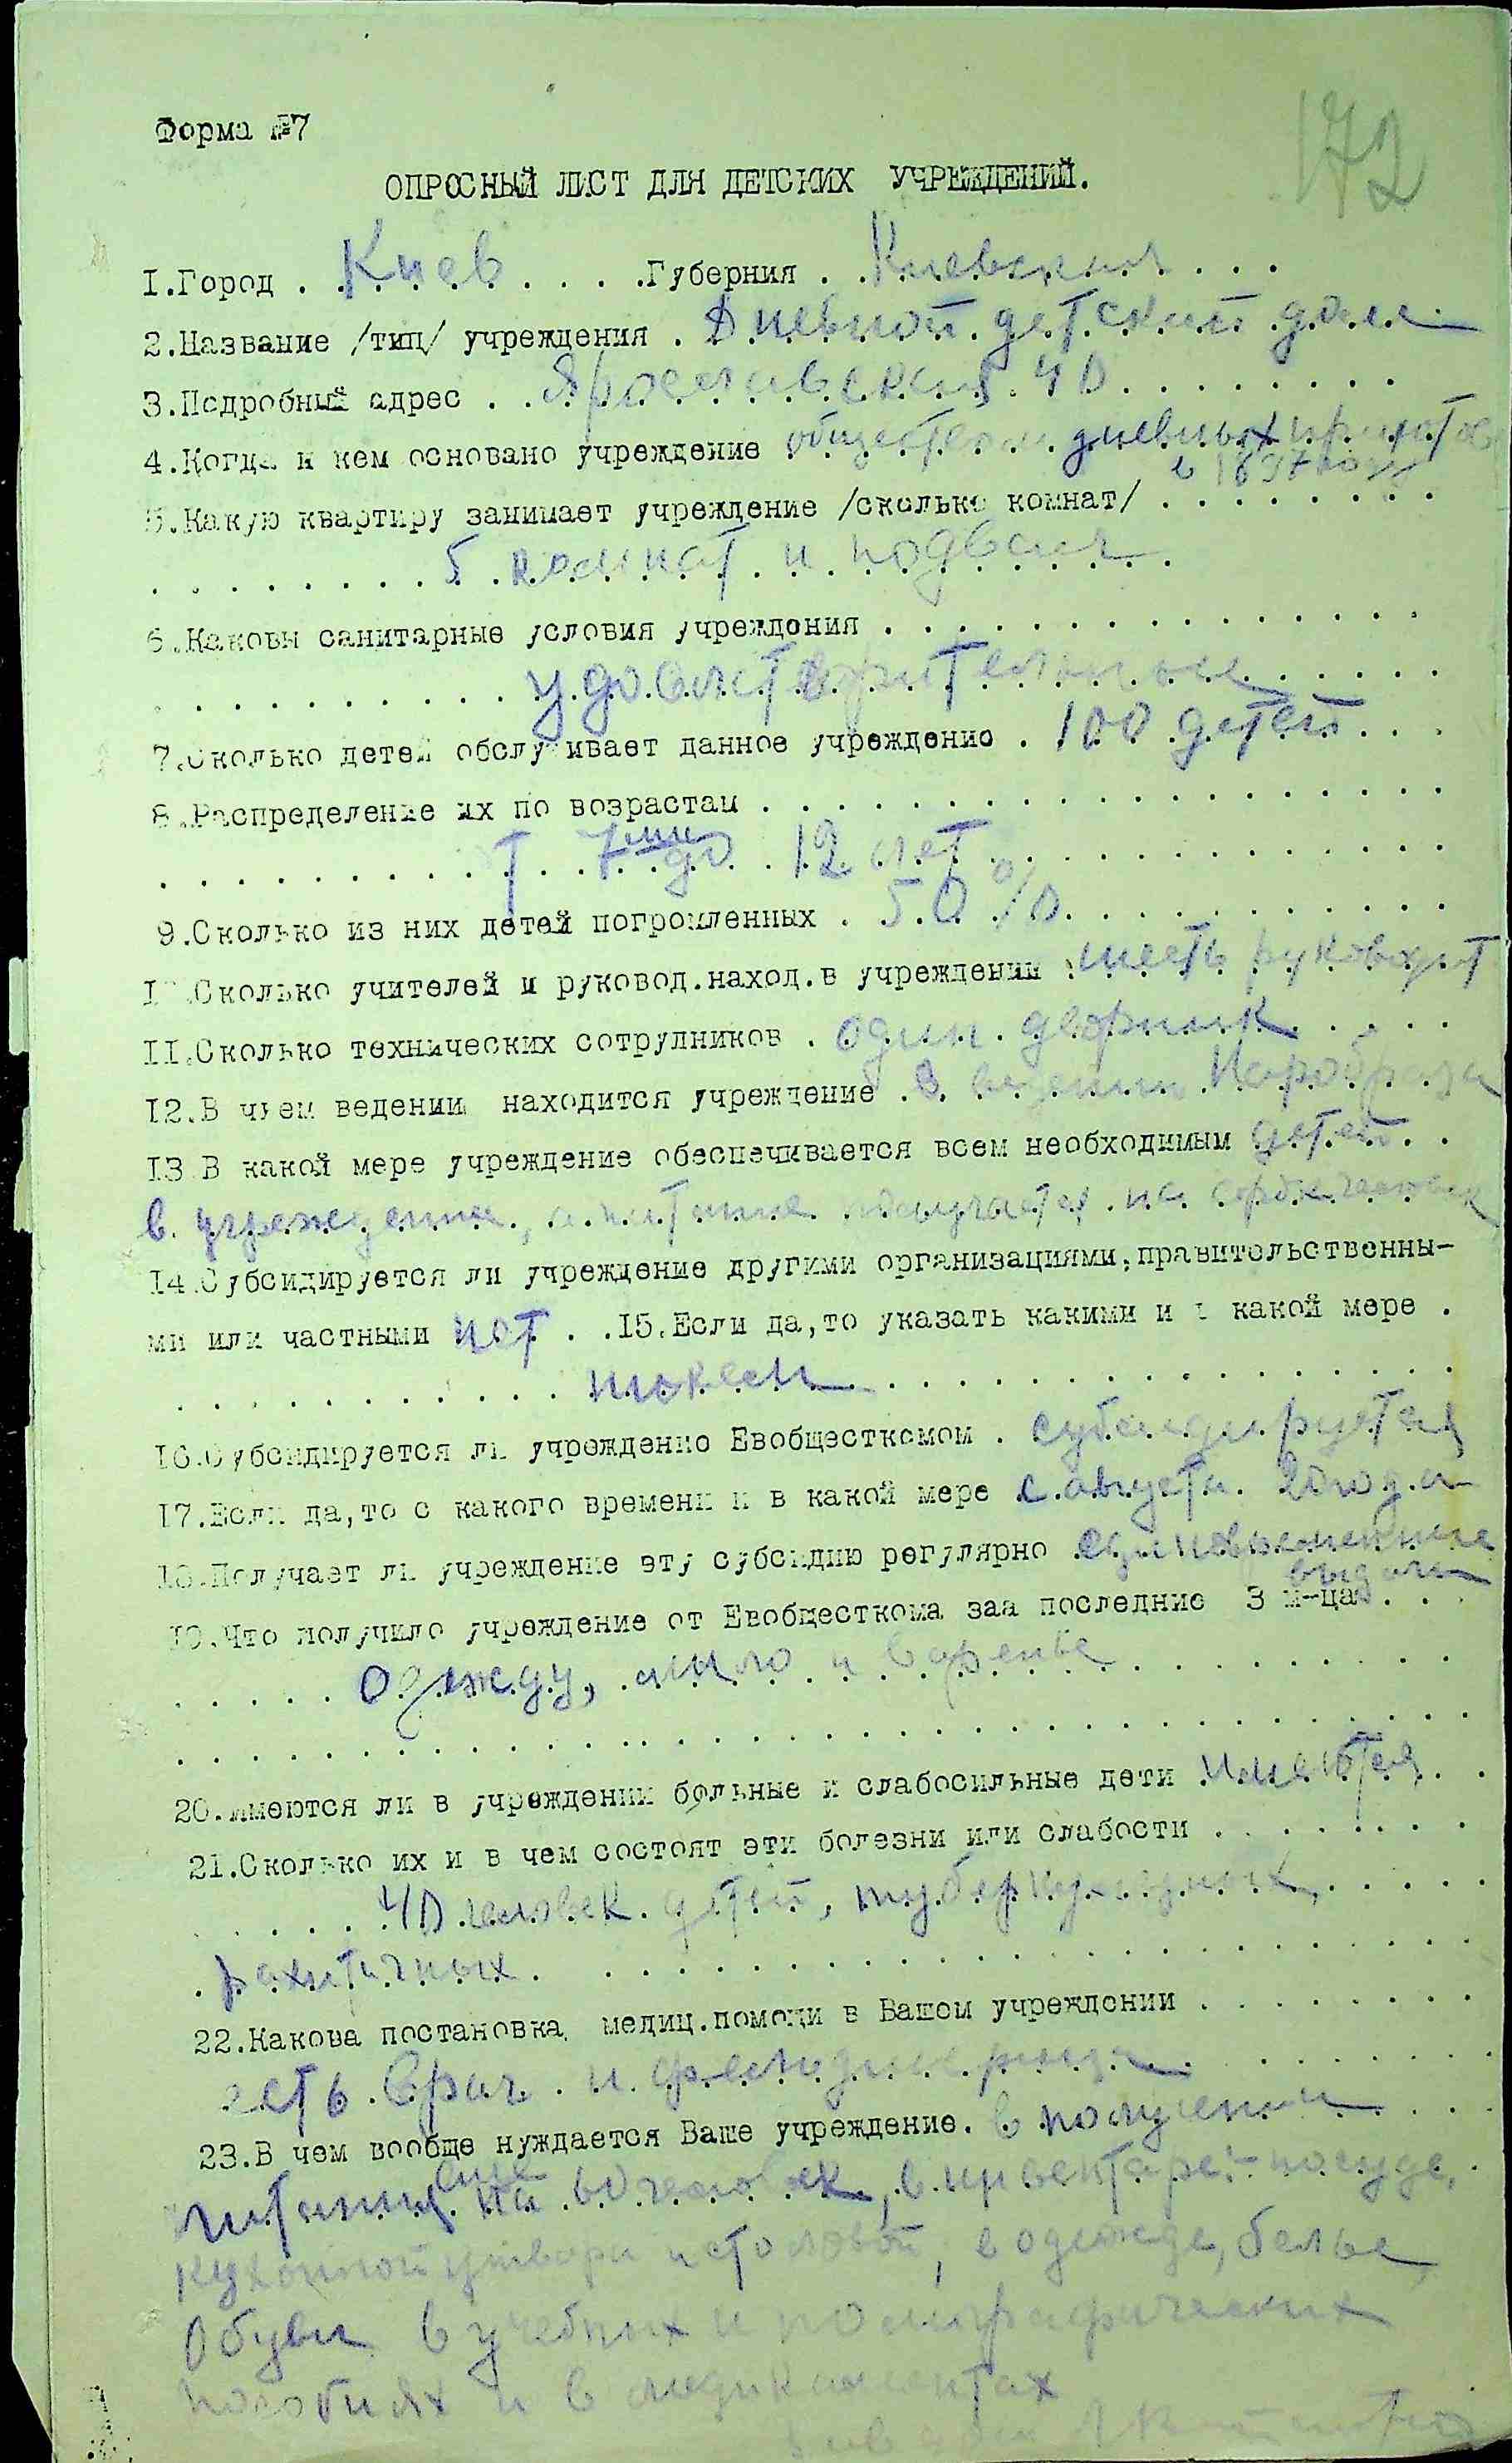 172
Форма №7
ОПРОСНЫЙ ЛИСТ ДЛЯ ДЕТСКИХ УЧРЕЖДЕНИЙ.
1.Город . Киев . . . .Губерния . . Киевская . . .
2.Название /тип/ учреждения . Дневной детский дом
3.Подробный адрес . . Ярославская 40 . . . . . . . .
4.Когда и кем основано учреждение обществом дневных приютов
в 1897 году
5.Какую квартиру занимает учреждение /сколько комнат/ . . . . . . . .
. . . . . . . . 5 комнат и подвал .
6.Каковы санитарные условия учреждения . . . . . . . . . . . . . . .
. . . . . . . . . . удовлетворительные . . . . .
7.Сколько детей обслуживает данное учреждение . 100 детей . . .
8.Распределение их по возрастам . . . . . . . . . . . . . . . . . . .
. . . . . . . . . . от 7ми до 12 лет . . . . . . . . . . . .
9.Сколько из них детей погромленных . 50 % . . . . . . . . . . .
10.Сколько учителей и руковод.наход.в учреждении шесть руководит
11.Сколько технических сотрудников . один дворник . . . . .
12.В чьем ведении находится учреждение . В ведении Наробраза
13.В какой мере учреждение обеспечивается всем необходимым детей . .
в учреждение, питание получается на сорок человек
14.Субсидируется ли учреждение другими организациями,правительственны-
ми или частными нет . .15.Если да,то указать какими и в какой мере .
. . . . . . . . . . . . . . . . . . . . . . . . . .
16.Субсидируется ли учреждение Евобщесткомом . субсидируется
17.Если да,то с какого времени и в какой мере с августа 20 года
18.Получает ли учреждение эту субсидию регулярно единовременные
выдачи
19.Что получило учреждение от Евобщесткома заа последние 3 м-ца . . .
. . . . . одежду, мыло и варенье . . . . . . . . .
. . . . . . . . . . . . . . . . . . . . . . . . . . .
20.Имеются ли в учреждении больные и слабосильные дети имеются . .
21.Сколько их и в чем состоят эти болезни или слабости . . . . . . . .
. . . . . 40 человек детей, туберкулезных, . . . . .
. рахитичных . . . . . . . . . . . . . . . . . . . .
22.Какова постановка медиц.помощи в Вашем учреждении . . . . . . . .
есть Врач и фельдшерица . . . . . . .
23.В чем вообще нуждается Ваше учреждение. в получении . . .
еще
питания на 60 человек, в инвентаре: посуде,
кухонной утвари и столовой, в одежде, белье,
Обуви в учебных и полиграфических
пособиях и в медикаментах